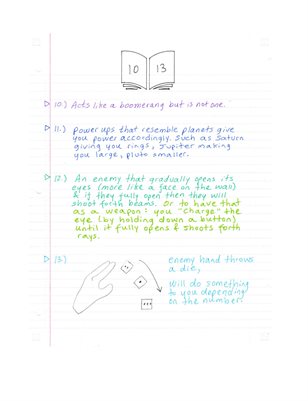 10 13
10.) Acts like a boomerang but is not one.
11.) Power ups that resemble planets give
you power accordingly. Such as Saturn
giving you rings, Jupiter making
you large, pluto smaller.
12.) An enemy that gradually opens its
eyes (more like a face on the wall)
& if they fully open then they will
shoot forth beams. Or to have that
as a weapon: you "charge" the
eye (by holding down a button)
until it fully opens & shoots forth
rays.
13.) enemy hand throws
a die,
Will do something
to you depending
on the number.